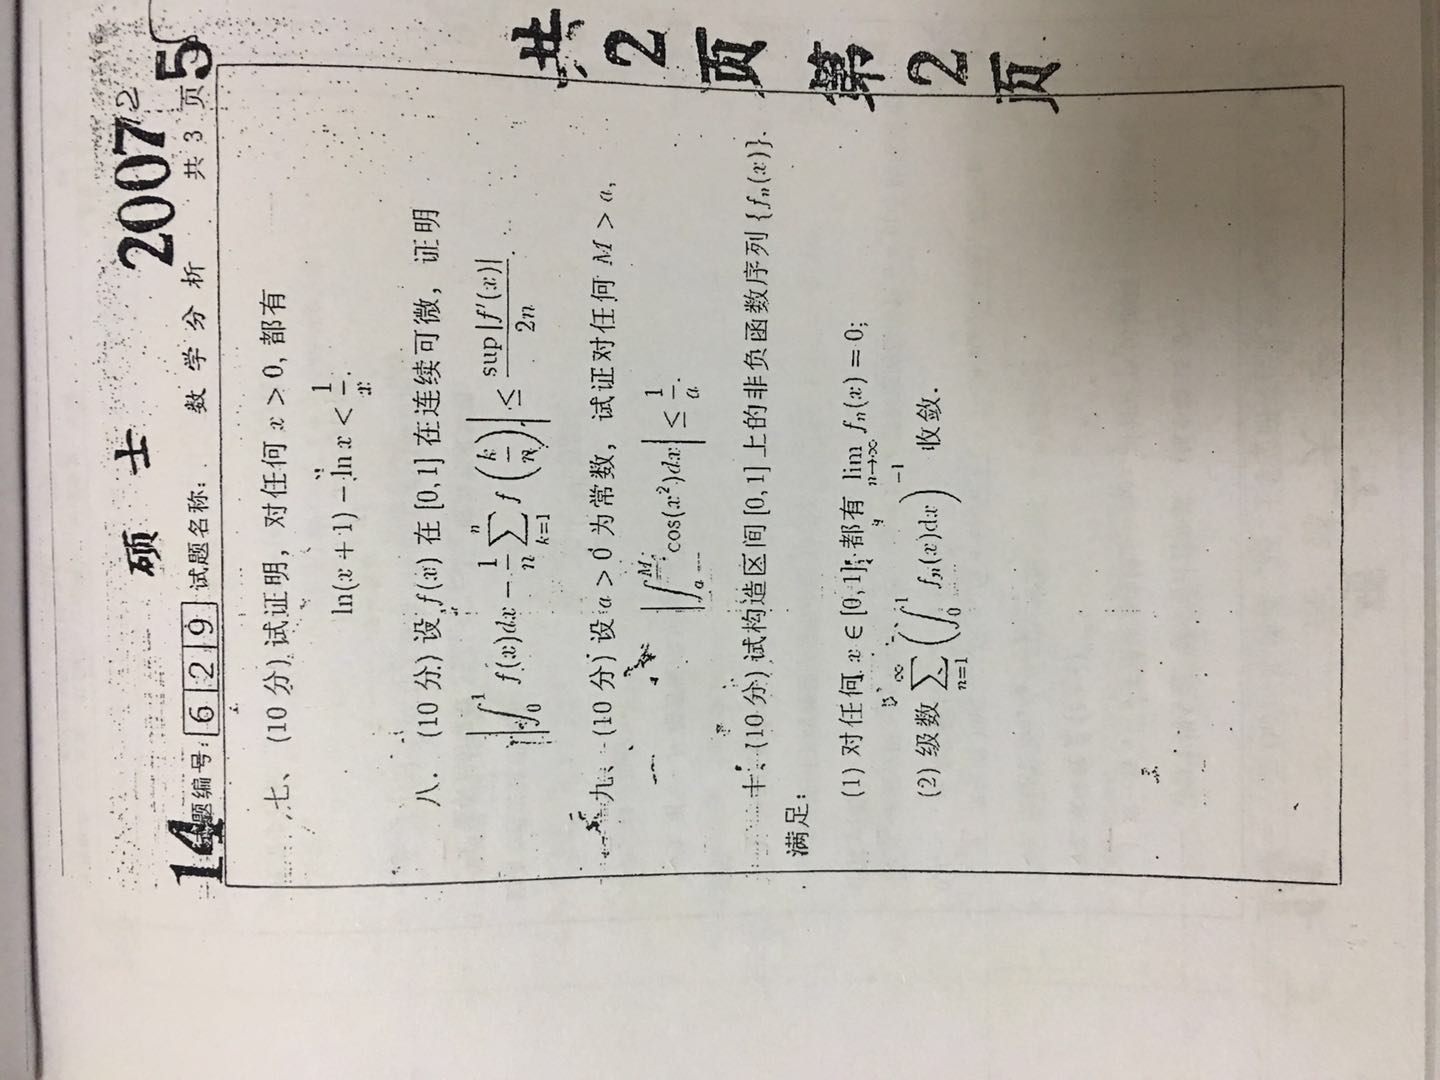 共 2 页 第 2 页
14 硕 士 2007 5
试题编号: 6 2 9 试题名称: 数 学 分 析 共 3 页
七、(10 分) 试证明, 对任何 x > 0, 都有
ln(x + 1) − ln x < 1/x.
八. (10 分) 设 f(x) 在 [0, 1] 在连续可微, 证明
|∫_0^1 f(x)dx − 1/n ∑_{k=1}^n f(k/n)| ≤ sup |f′(x)| / 2n.
九、(10 分) 设 a > 0 为常数, 试证对任何 M > a,
|∫_a^M cos(x²)dx| ≤ 1/a.
十、(10 分) 试构造区间 [0, 1] 上的非负函数序列 {f_n(x)}.
满足:
(1) 对任何 x ∈ [0, 1], 都有 lim_{n→∞} f_n(x) = 0;
(2) 级数 ∑_{n=1}^∞ (∫_0^1 f_n(x)dx)^{−1} 收敛.